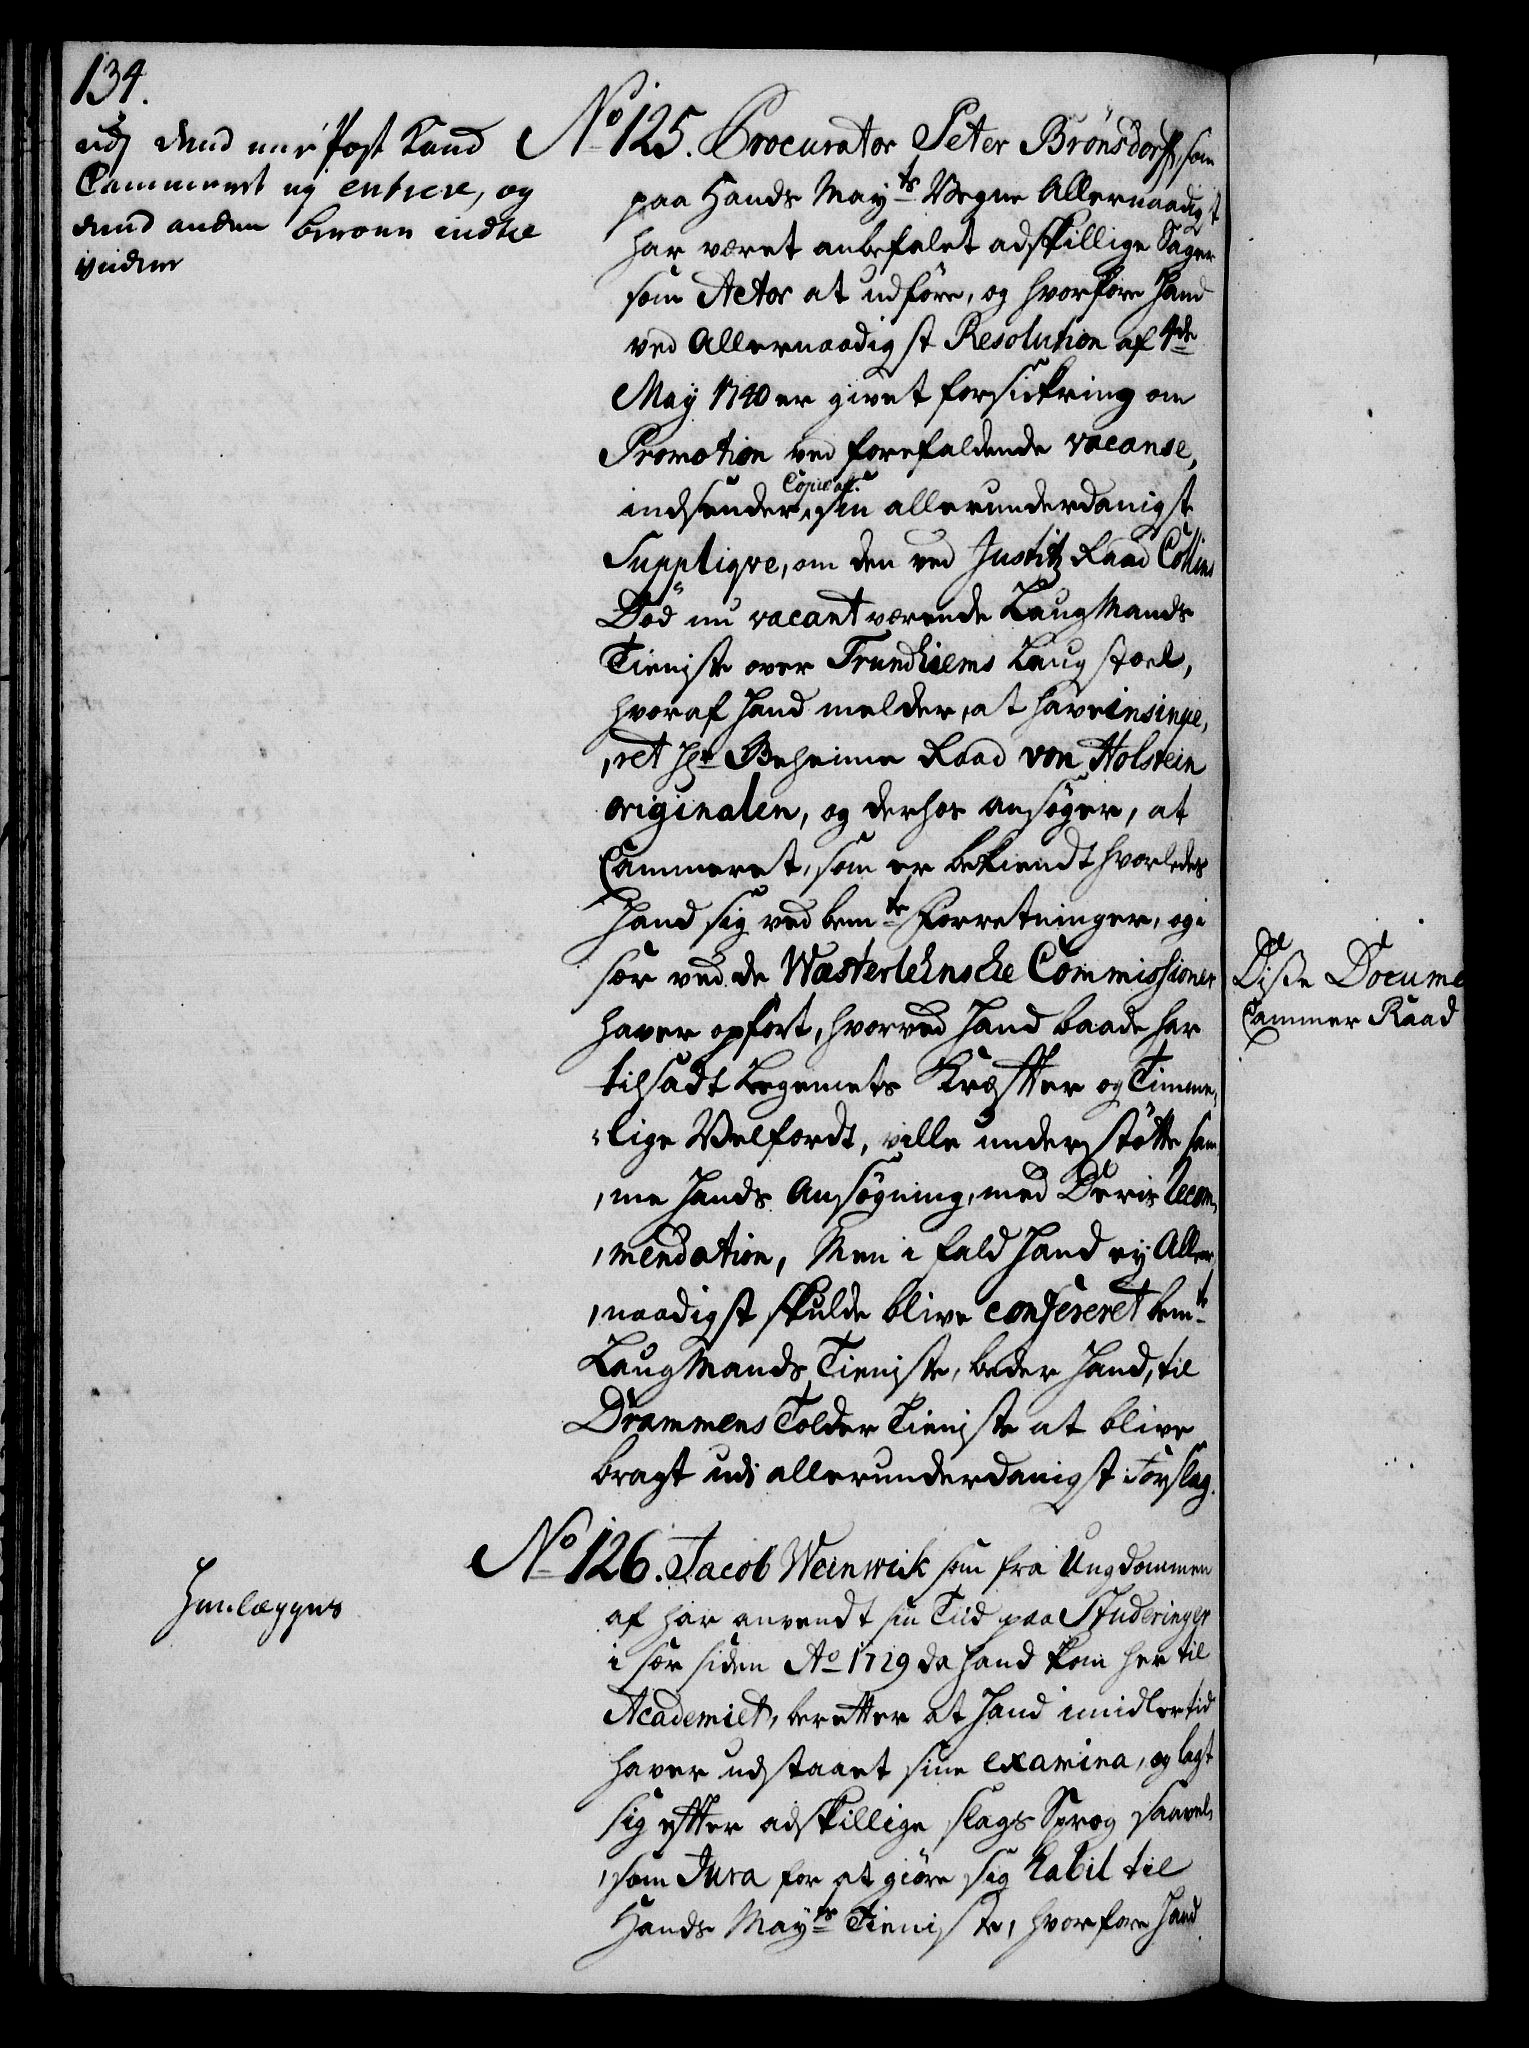 134.
udj dend eene Post kand
Cammeret ej entrere, og
dend anden beroer indtil
videre
No 125. Procurator Peter Brönsdorff, som
paa Hands Mayts Vegne Allernaadigst
har været anbefalet adskillige Sager
som Actor at udføre, og hvorfore Hand
ved Allernaadigst Resolution af 4de
May 1740 er givet forsickring om
Promotion ved forefaldende vacanse,
indsender Copie aff sin allerunderdanigste
Suppliqve, om den ved Justitz Raad Collins
Död nu vacant værende LaugMands
Tieniste over Trundhiems Laugstoel,
hvoraf Hand melder, at have insinue,
,ret Hr Geheime Raad von Holstein
originalen, og derhos ansøger, at
Cammeret, som er bekiendt hvorledes
Hand sig ved bemte Forretninger, og i
sær ved de Wasterlehnsche Commissioner
haver opført, hvorved Hand baade har
tilsadt Legemets Kræffter og Timme,
,lige Velfærdt, ville understötte sam
,me Hands Ansøgning, med Deris Recom,
,mendation, Men i fald Hand ej Aller,
,naadigst skulde blive confereret bemte
LaugMands Tieniste, beder Hand, til
Drammens Tolder Tieniste at blive
bragt udi allerunderdanigst Forslag.
Disse Docume
Cammer Raad
No 126. Jacob Weinwick som fra Ungdommen
Henlægges
af har anvendt sin Tiid paa Studeringer
i sær siden Ao 1729 da Hand kom her til
Academiet, beretter at Hand imidlertid
haver udstaaet sine examina, og lagt
sig effter adskillige slags Sprog saavel,
,som Jura for at giöre sig habil til
Hands Mayts Tieniste, hvorfore Hand